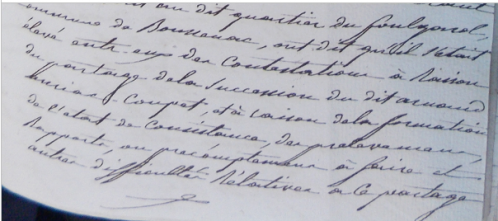 au dit quartier du
commune de Bonsenac, ont dit qu'il s'était
élevé entr'eux des Contestations à Raison
du partage de la Succession du dit arnaud
Coupat, et à raison de la formation
de l'état de Consistance, des prélevemens,
Rapports, ou précomptemens à faire et
autres difficultés Rélatives à Ce partage